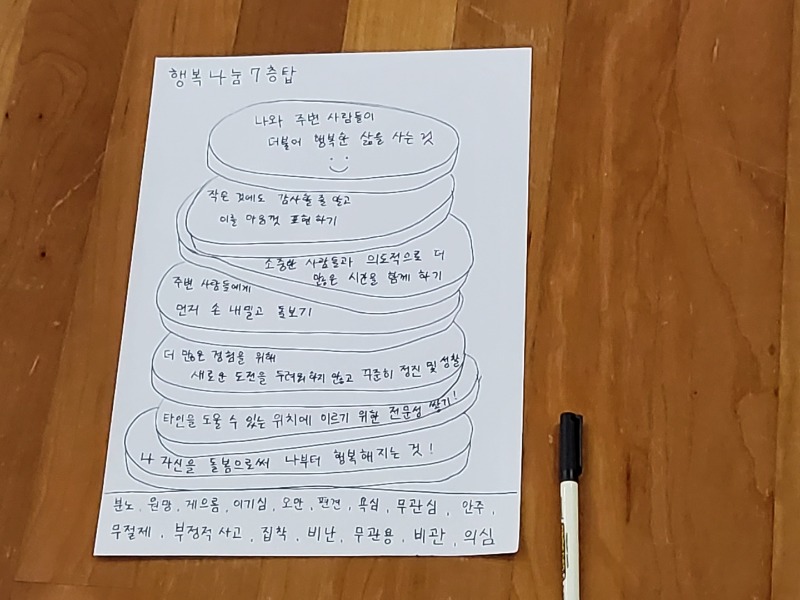 행복 나눔 7층탑
나와 주변 사람들이
더불어 행복한 삶을 사는 것
작은 것에도 감사할 줄 알고
이를 마음껏 표현하기
소중한 사람들과 의도적으로 더
많은 시간을 함께 하기
주변 사람들에게
먼저 손 내밀고 돌보기
더 많은 경험을 위해
새로운 도전을 두려워하지 않고 꾸준히 정진 및 성찰
타인을 도울 수 있는 위치에 이르기 위한 전문성 쌓기!
나 자신을 돌봄으로써 나부터 행복해지는 것!
분노, 원망, 게으름, 이기심, 오만, 편견, 욕심, 무관심, 안주,
무절제, 부정적 사고, 집착, 비난, 무관용, 비관, 의심